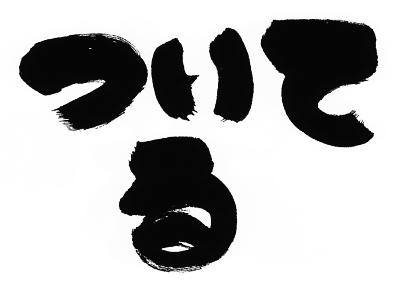 ついて
る